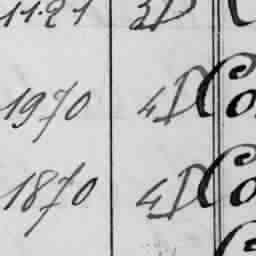 11.21 3D
1970 4D Co
1870 4D Co